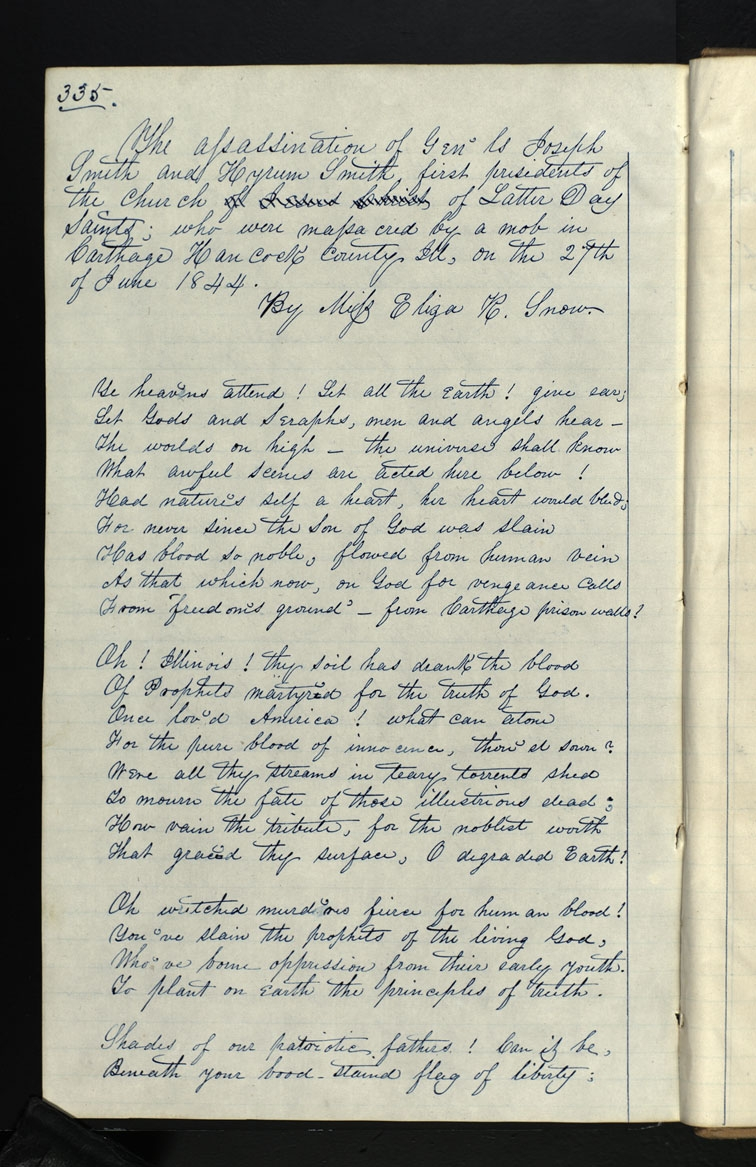 335.
The assassination of Gen's Joseph
Smith and Hyrum Smith, first presidents of
the Church of of Latter Day
Saints; who were massacred by a mob in
Carthage Hancock County, Ill, on the 27th
of June 1844.
By Miss Eliza R. Snow.
Ye heav'ns attend! Let all the Earth! give ear;
Let Gods and Seraphs, men and angels hear—
The worlds on high — the universe shall know
What awful scenes are acted here below!
Had nature's self a heart, her heart would bleed;
For never since the Son of God was slain
Has blood so noble, flowed from human vein
As that which now, on God for vengeance calls
From "freedom's ground" — from Carthage prison walls?
Oh! Illinois! thy soil has drank the blood
Of Prophets martyr'd for the truth of God.
Once lov'd America! what can atone
For the pure blood of innocence, thou'st sown?
Were all thy streams in teary torrents shed
To mourn the fate of those illustrious dead;
How vain the tribute, for the noblest worth
That grac'd thy surface, O degraded Earth!
Oh wretched murd'res fierce for human blood!
You've slain the prophets of the living God,
Who've borne oppression from their early youth.
To plant on Earth the principles of truth.
Shades of our patriotic fathers! Can it be,
Beneath your bood-stained flag of liberty;